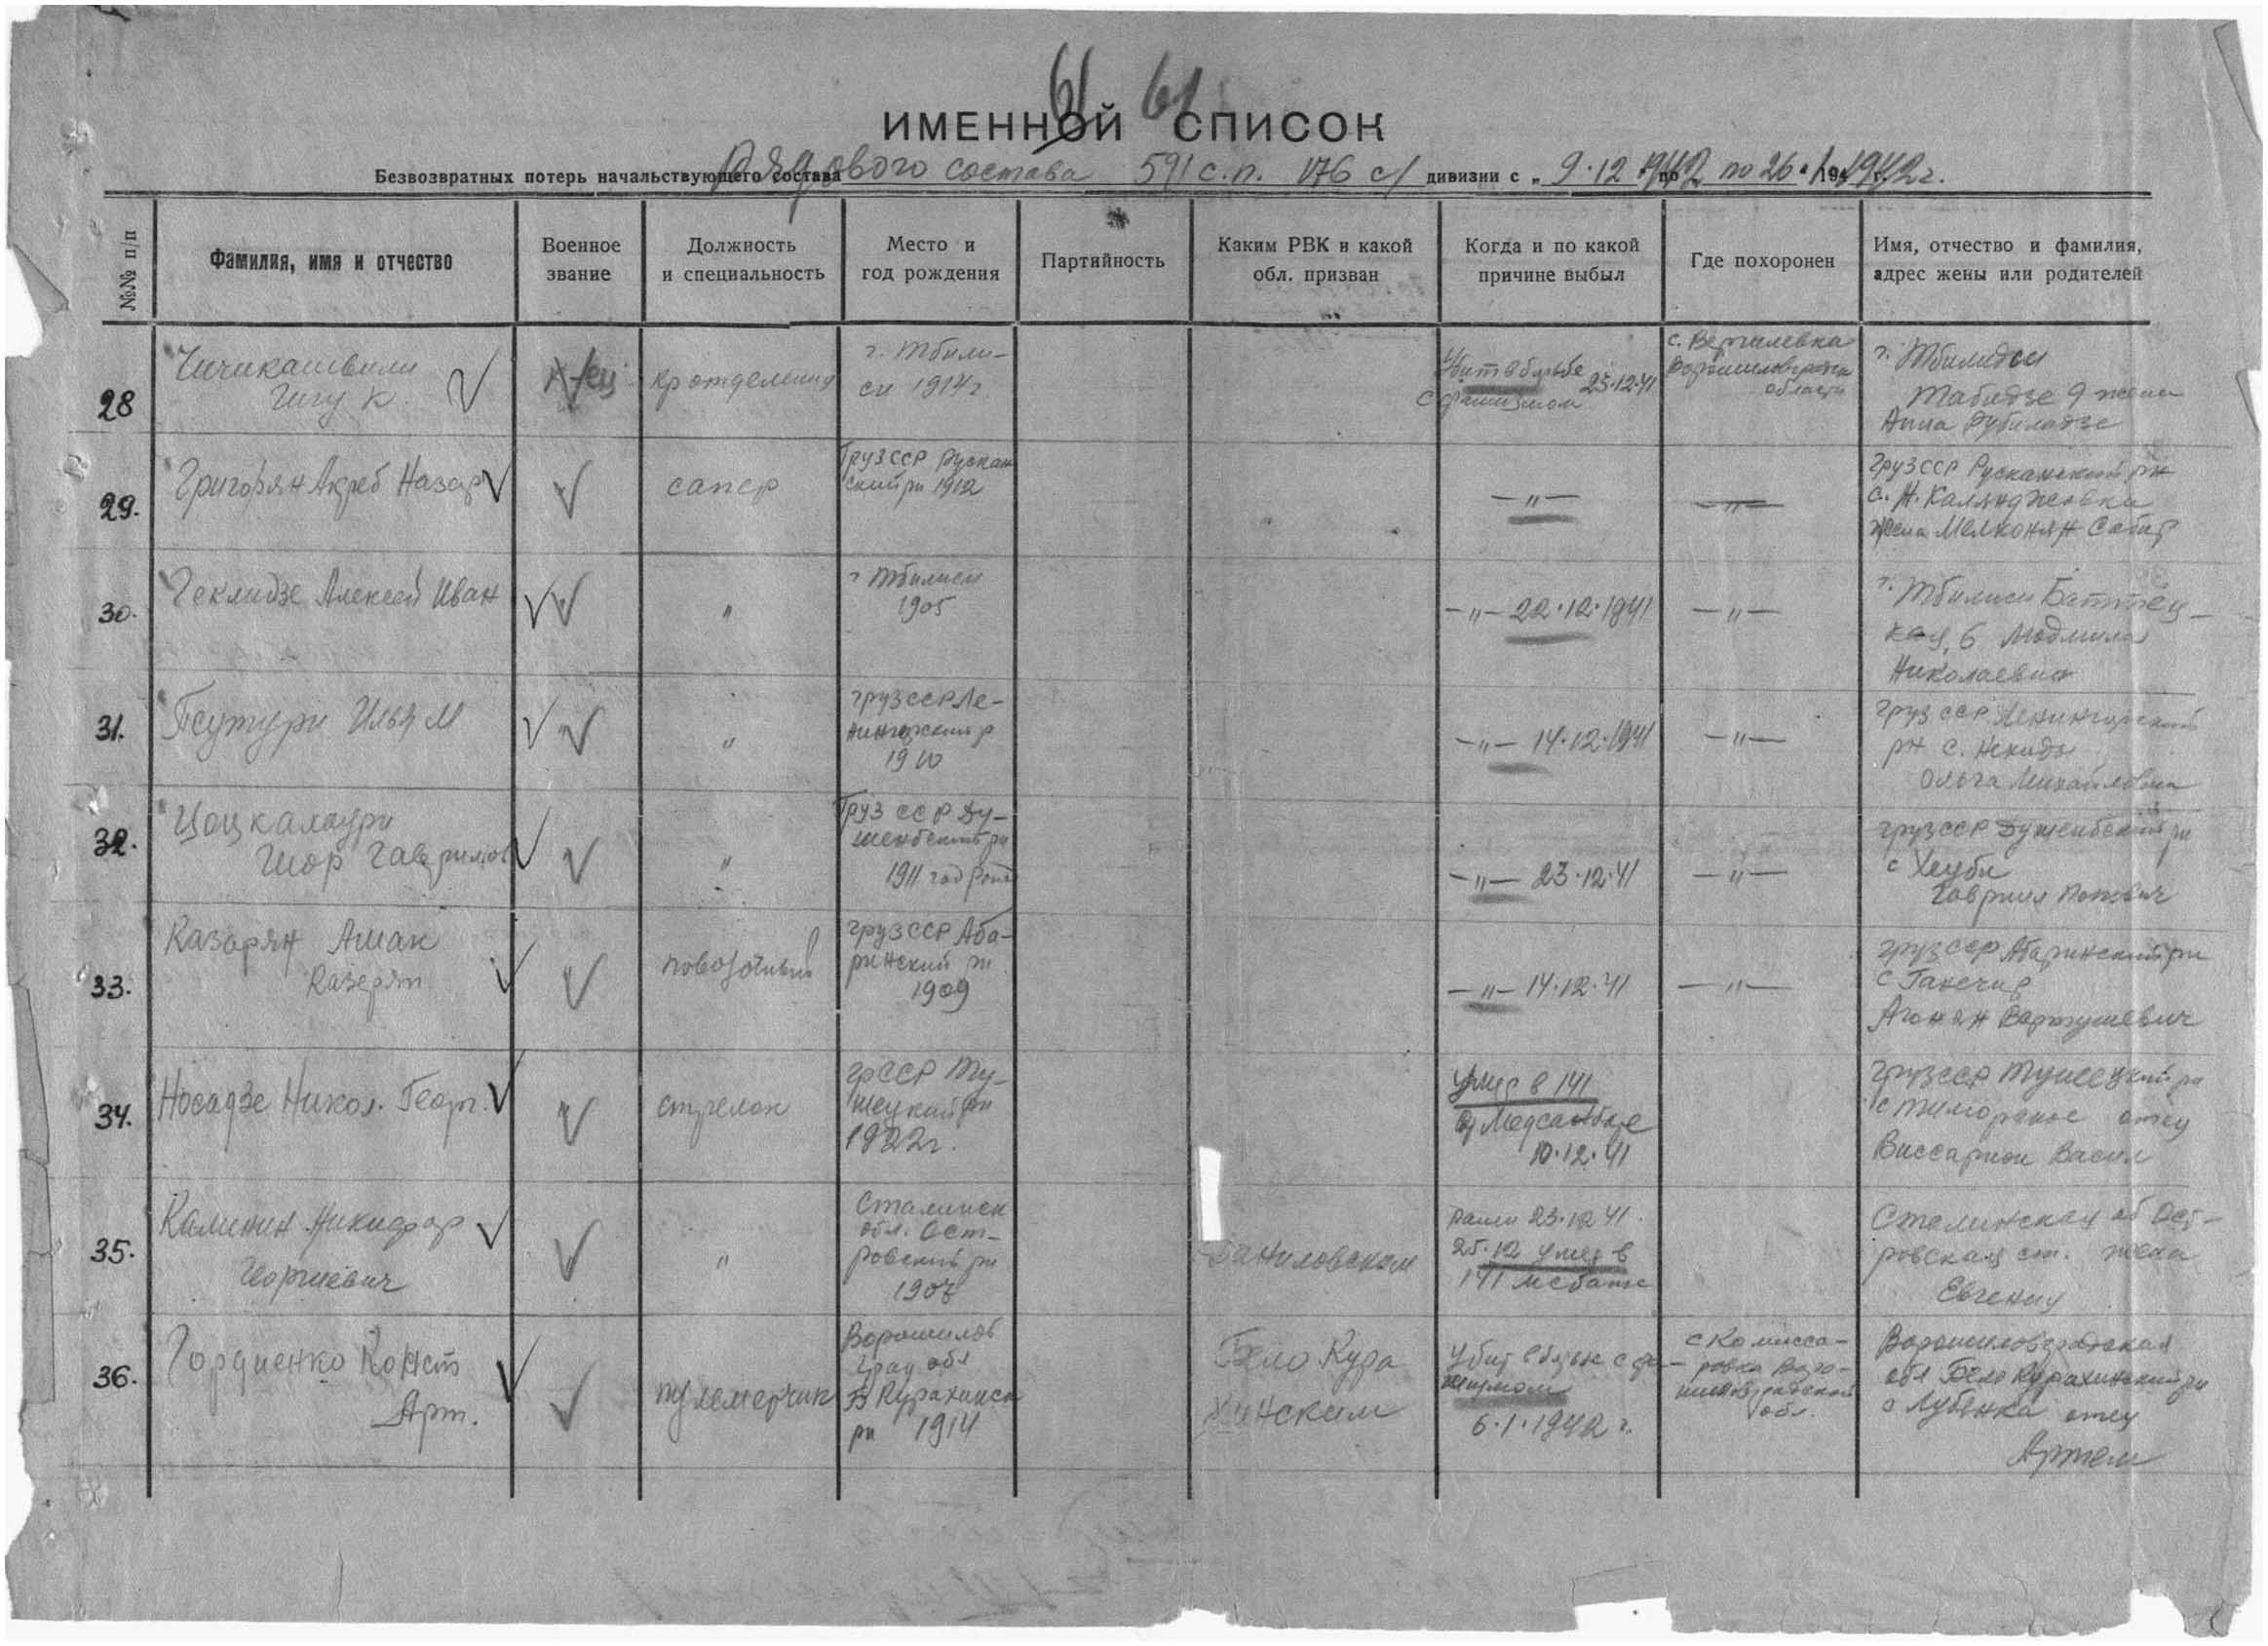 61 61
ИМЕННОЙ СПИСОК
Безвозвратных потерь начальствующего состава рядового состава 591 с.п. 176 с/ дивизии с „ 9.12.1942 по 26.1.1942 г.
№№ п/п
Фамилия, имя и отчество
Военное звание
Должность и специальность
Место и год рождения
Партийность
Каким РВК и какой обл. призван
Когда и по какой причине выбыл
Где похоронен
Имя, отчество и фамилия, адрес жены или родителей
28
Чичикашвили
К.
кр отделения
г. Тбили-
си 1914 г.
Убит в борьбе
с фашизмом 23.12.41
с. Вергилевка
Ворошиловградск
области
г.
Табидзе 9 жена
Анна
29.
Григорян Назар
сапер
Груз ССР Рускан
ский рн 1912
—"—
—"—
Груз ССР Русканский рн
с. Н.
жена Мелконян
30.
Геклидзе Алексей Иван
"
г Тбилиси
1905
—"— 22.12.1941
—"—
г. Тбилиси
6 Людмила
Николаевна
31.
Псутури Илья М
"
Груз ССР Ле-
нингорский р
1910
—"— 14.12.1941
—"—
Груз ССР Ленингорский
рн с.
Ольга Михайловна
32.
Цоцкалаури
Гаврилов
"
Груз ССР Ду-
шенбский рн
1911 год рожд
—"— 23.12.41
—"—
Груз ССР Душенбский рн
с
Гаврил
33.
Казарян Ашак
повозочный
Груз ССР Аба-
ринский рн
1909
—"— 14.12.41
—"—
Груз ССР Абаринский рн
с
34.
Носадзе Никол. Георг.
стрелок
Гр ССР Ту-
шецкий рн
1922 г.
Умер в 141
Медсанбате
10.12.41
Груз ССР Тушецкий рн
с отец
Виссарион Васил
35.
Калинин Никифор
Георгиевич
"
Сталинск
обл. Ост-
ровский рн
1907
Даниловским
ранен 23.12.41.
25.12 умер в
141 мсбате
Сталинская об Ост-
ровская ст. жена
Евгения
36.
Гордиенко Конст
Арт.
пулеметчик
Ворошилов
град обл
Б Курахинск
рн 1914
Бело Кура
хинским
Убит в борьбе с фа-
шизмом
6.1.1942 г.
с Комисса-
ровка Воро-
шиловградской
обл.
Ворошиловградская
обл Бело Курахинский рн
с Лубянка отец
Артем